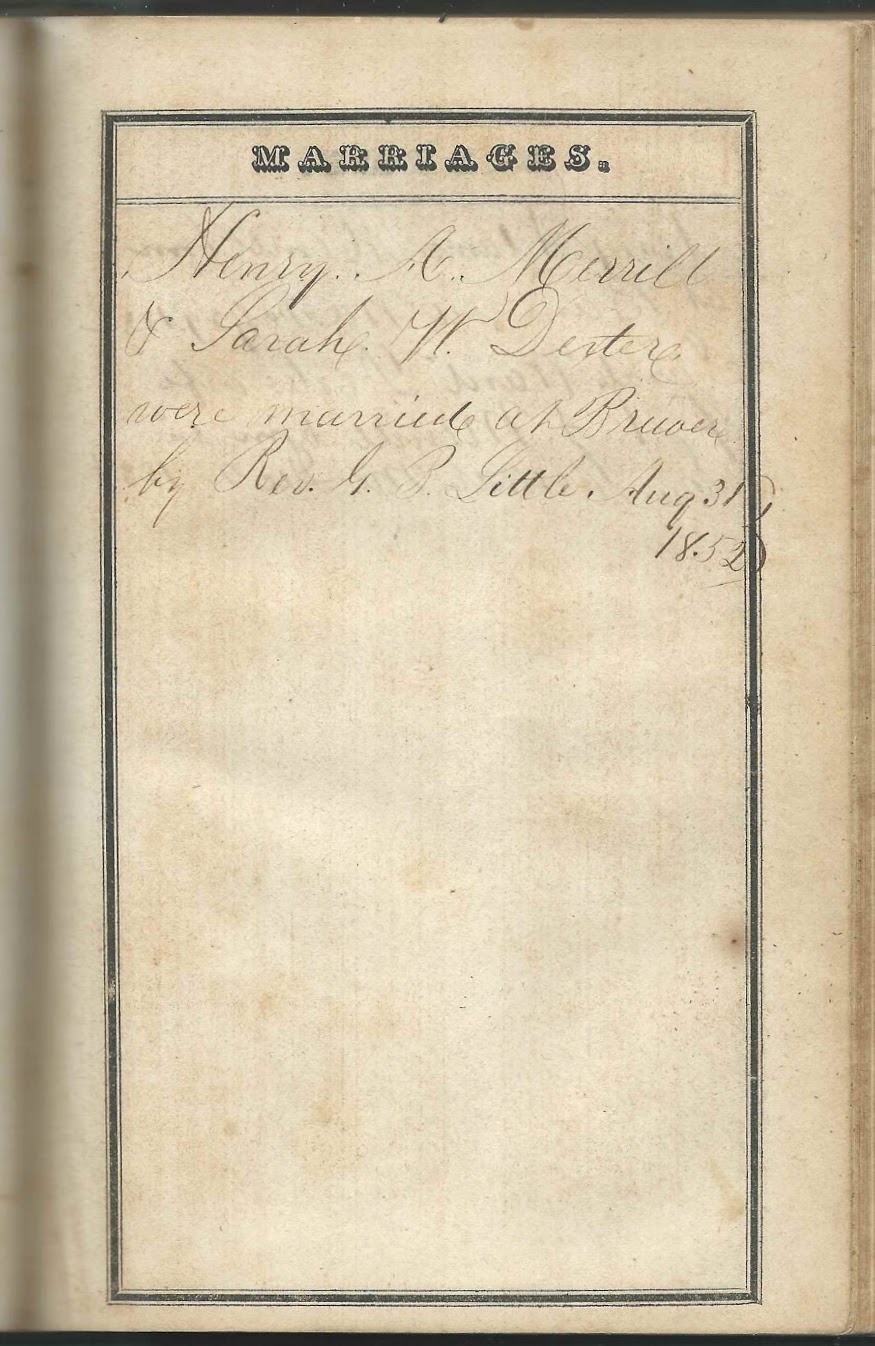 MARRIAGES.
Henry. A. Merrill
& Sarah. W. Dexter
were married at Brewer
by Rev. G. P. Little. Aug 31
1852